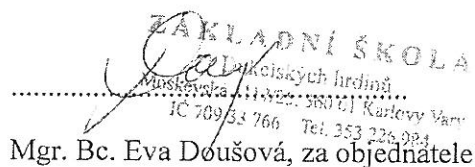 ZÁKLADNÍ ŠKOLA
Dukelských hrdinů
Moskevská 360 01 Karlovy Vary
IČ 709 33 766 Tel. 353 226 984
Mgr. Bc. Eva Doušová, za objednatele